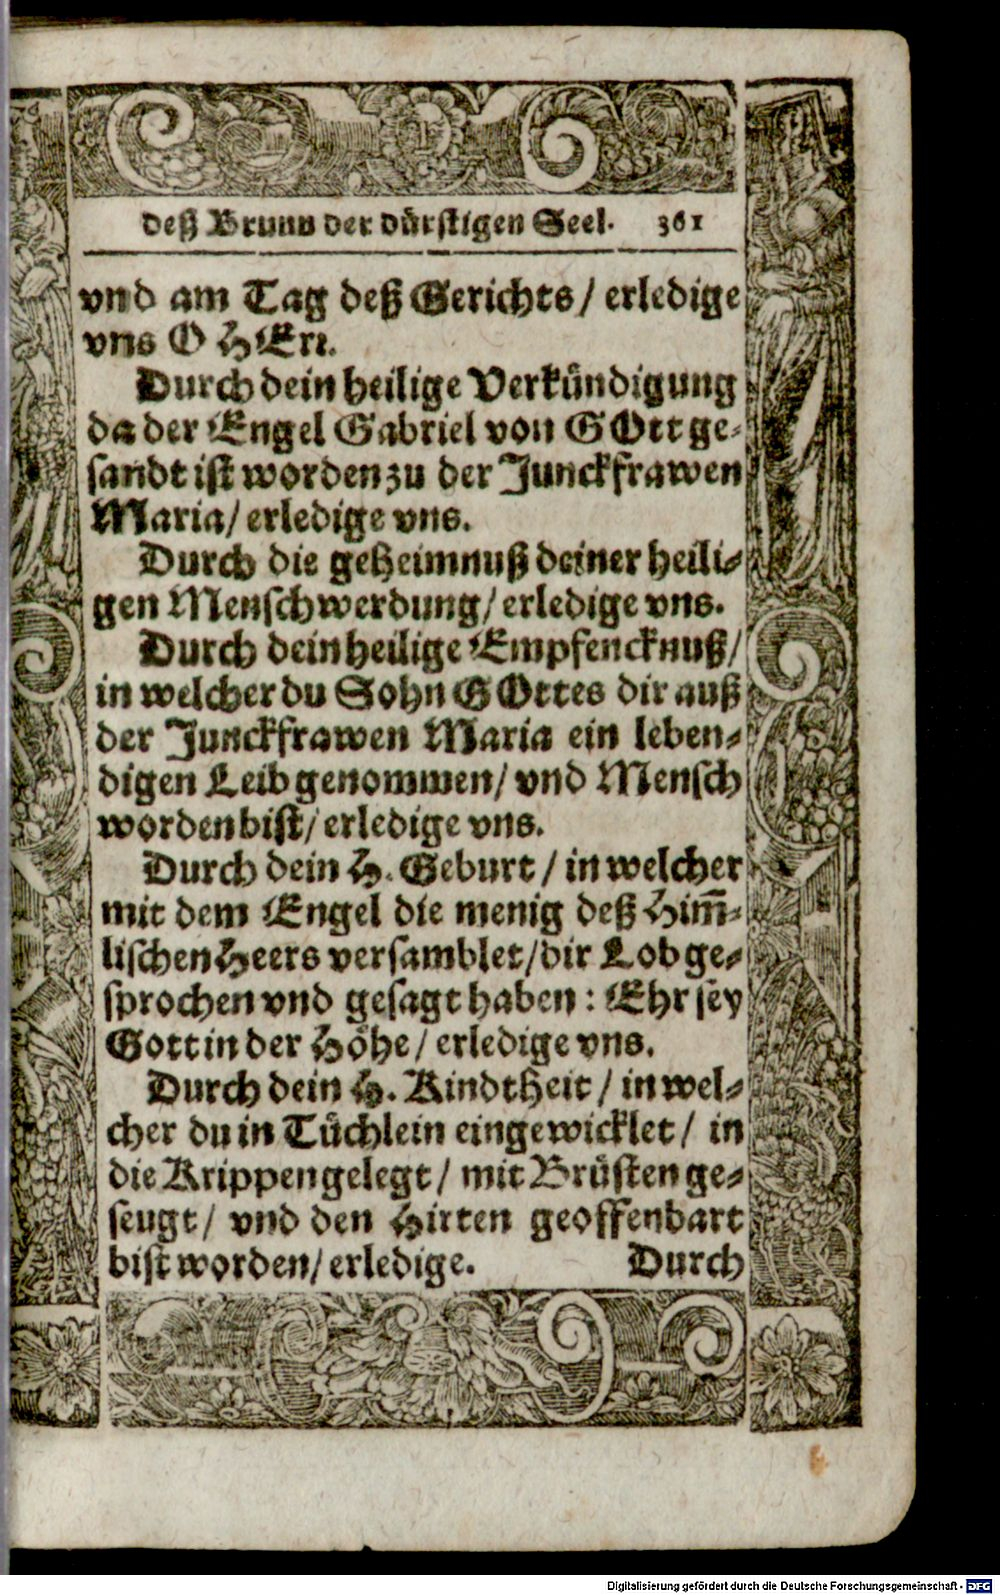 deß Brunn der dürstigen Seel. 361
vnd am Tag deß Gerichts / erledige
vns O HErr.
Durch dein heilige Verkündigung
da der Engel Gabriel von GOtt ge-
sandt ist worden zu der Junckfrawen
Maria / erledige vns.
Durch die geheimnuß deiner heili-
gen Menschwerdung / erledige vns.
Durch dein heilige Empfencknuß /
in welcher du Sohn GOttes dir auß
der Junckfrawen Maria ein leben-
digen Leib genommen / vnd Mensch
worden bist / erledige vns.
Durch dein H. Geburt / in welcher
mit dem Engel die menig deß Him̃-
lischen Heers versamblet / dir Lob ge-
sprochen vnd gesagt haben : Ehr sey
Gott in der Höhe / erledige vns.
Durch dein H. Kindtheit / in wel-
cher du in Tüchlein eingewicklet / in
die Krippen gelegt / mit Brüsten ge-
seugt / vnd den Hirten geoffenbart
bist worden / erledige. Durch
Digitalisierung gefördert durch die Deutsche Forschungsgemeinschaft - DFG